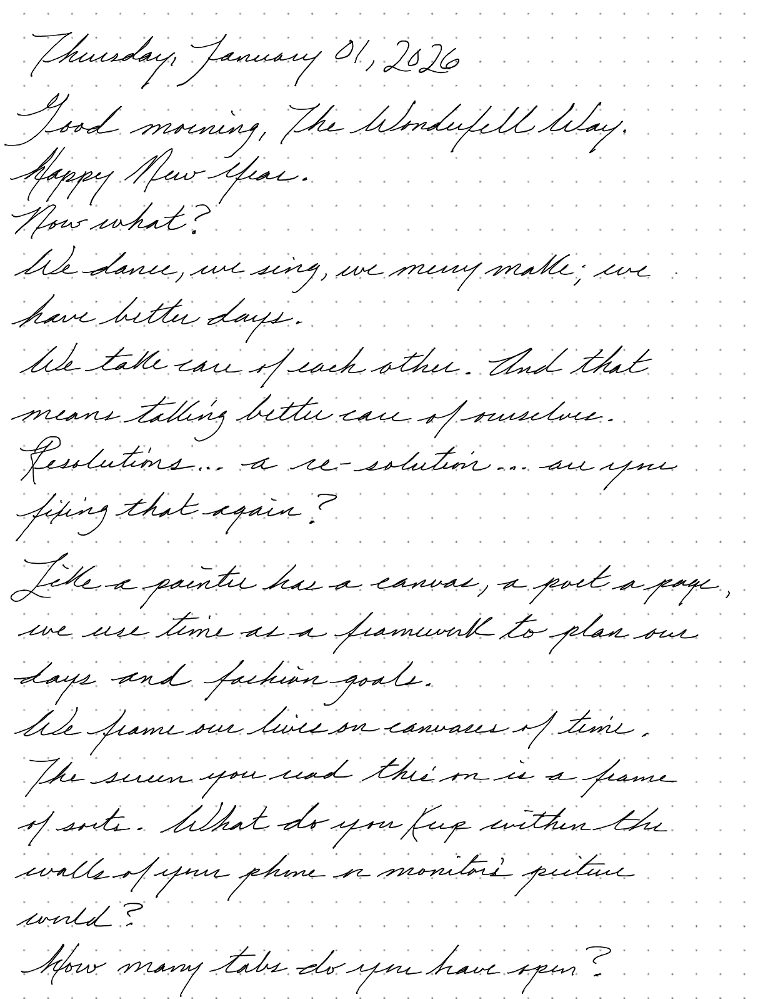 Thursday, January 01, 2026
Good morning, The Wonderfell Way.
Happy New Year.
Now what?
We dance, we sing, we merry make; we
have better days.
We take care of each other. And that
means taking better care of ourselves.
Resolutions... a re-solution... are you
fixing that again?
Like a painter has a canvas, a poet a page,
we use time as a framework to plan our
days and fashion goals.
We frame our lives on canvases of time.
The screen you read this on is a frame
of sorts. What do you keep within the
walls of your phone or monitor's picture
world?
How many tabs do you have open?